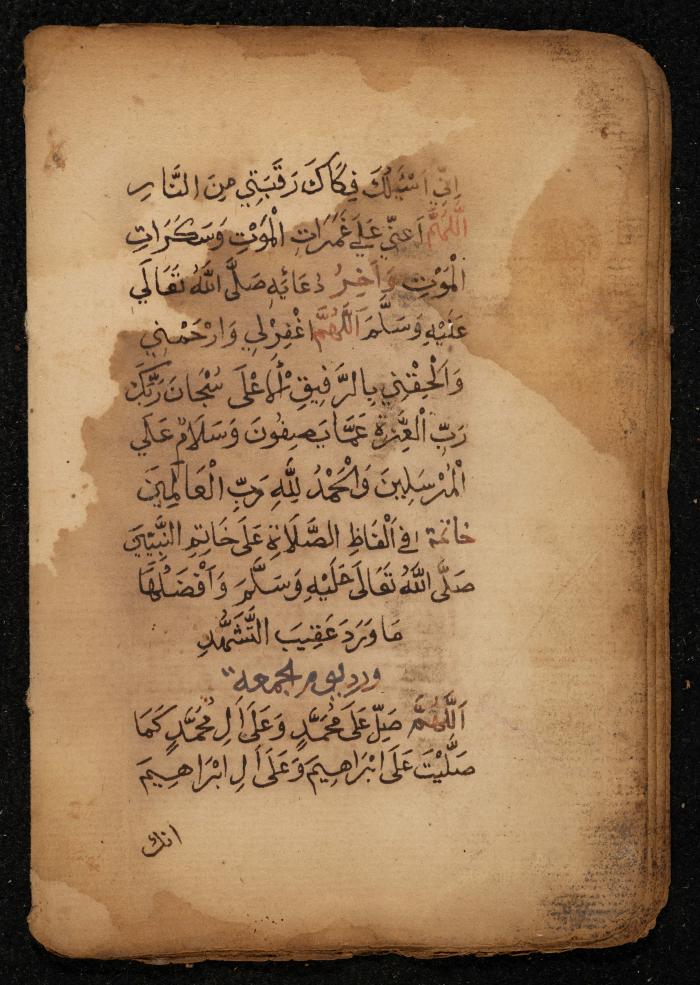 اِنِّي اَسْئَلُكَ فِكَاكَ رَقَبَتِي مِنَ النَّارِ
اَللّٰهُمَّ اَعِنِّي عَلَي غَمَرَاتِ الْمَوْتِ وَسَكَرَاتِ
الْمَوْتِ وَاٰخِرُ دُعَائِهِ صَلَّى اللّٰهُ تَعَالَي
عَلَيْهِ وَسَلَّمَ اَللّٰهُمَّ اغْفِرْلِي وَارْحَمْنِي
وَاَلْحِقْنِي بِالرَّفِيقِ الْاَعْلَى سُبْحَانَ رَبِّكَ
رَبِّ الْعِزَّةِ عَمَّا يَصِفُونَ وَسَلَامٌ عَلَي
الْمُرْسَلِينَ وَالْحَمْدُ لِلّٰهِ رَبِّ الْعَالَمِينَ
خاتمة في اَلْفَاظِ الصَّلَاةِ عَلَى خَاتِمِ النَّبِيِّينَ
صَلَّى اللّٰهُ تَعَالَى عَلَيْهِ وَسَلَّمَ وَاَفْضَلُهَا
مَا وَرَدَ عَقِيبَ التَّشَهُّدِ
ورد يوم الجمعه
اَللّٰهُمَّ صَلِّ عَلَى مُحَمَّدٍ وَعَلَى اٰلِ مُحَمَّدٍ كَمَا
صَلَّيْتَ عَلَى اِبْرَاهِيمَ وَعَلَى اٰلِ اِبْرَاهِيمَ
انك